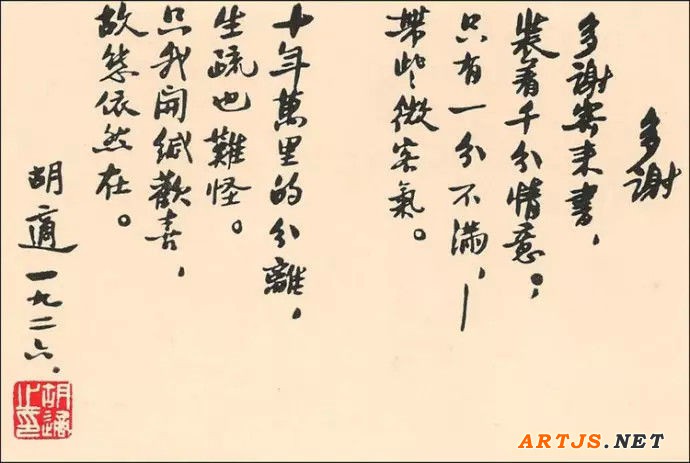 多謝
多謝寄来書，
裝着千分情意；
只有一分不滿，—
帶些微客氣。
十年萬里的分離，
生疏也難怪。
只我開緘歡喜，
故態依然在。
胡適 一九二六.
胡適之印
ARTJS.NET